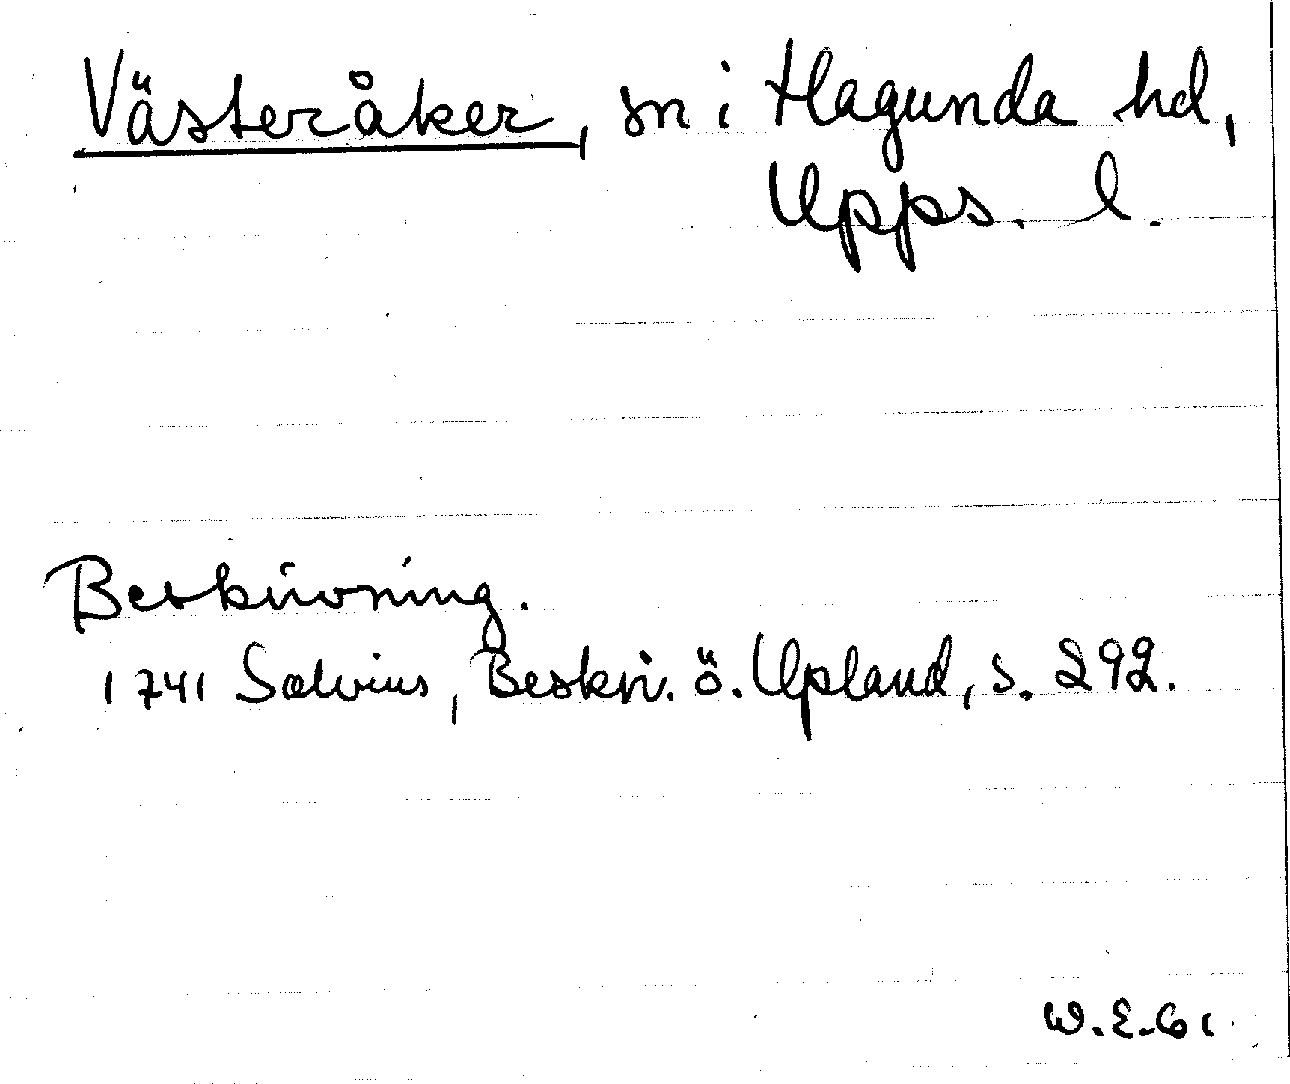 Västeråker, sn i Hagunda hd,
Upps. l.
Beskrivning.
1741 Salvius, Beskr. ö. Upland, s. 292.
W.E.61.